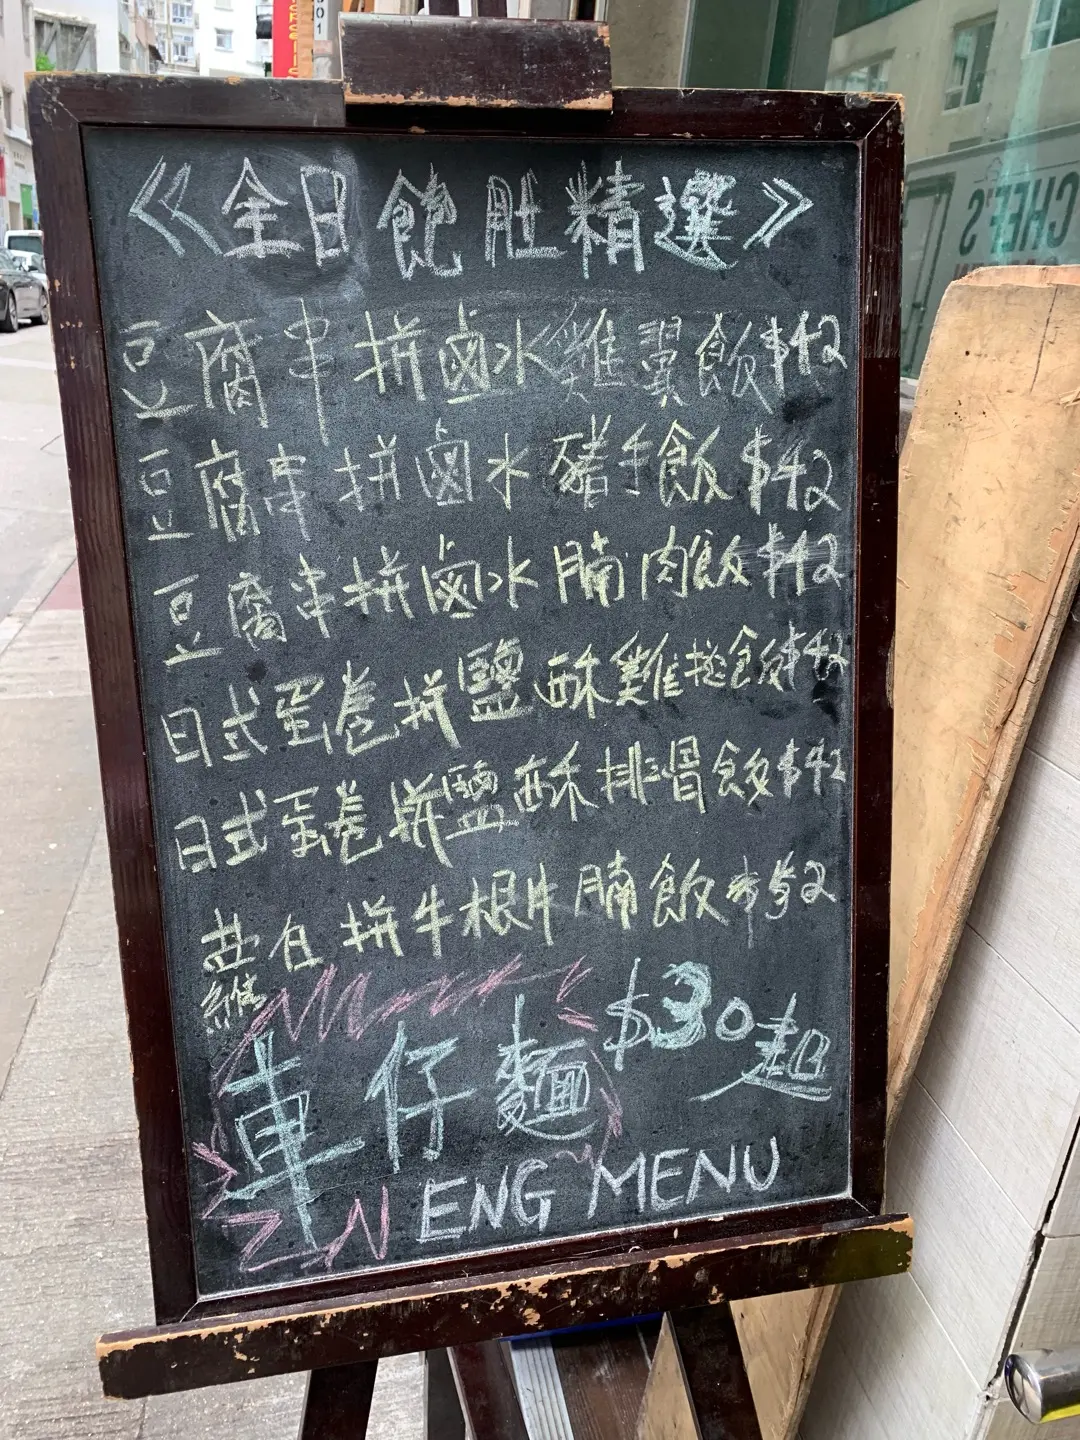 《全日飽肚精選》
豆腐串拼鹵水雞翼飯$42
豆腐串拼鹵水豬手飯$42
豆腐串拼鹵水腩肉飯$42
日式蛋卷拼鹽酥雞扒飯$42
日式蛋卷拼鹽酥排骨飯$42
拼牛根牛腩飯$52
車仔麵 $30起
ENG MENU
CHEF'S